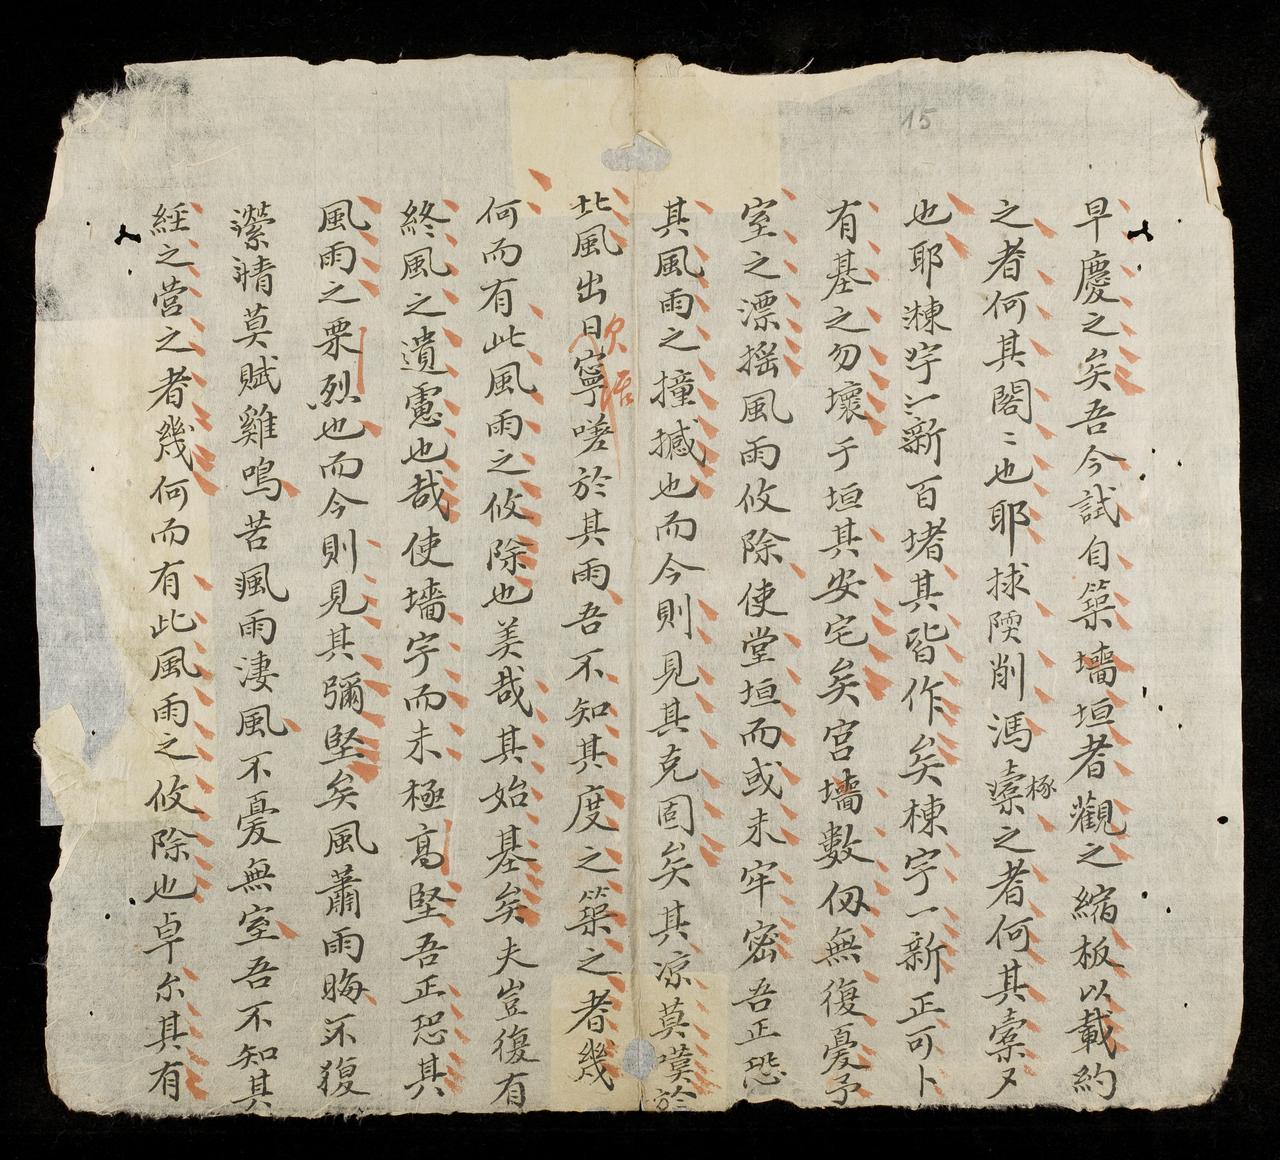 15
早慶之矣吾今試自築墻垣者觀之縮板以載約
之者何其閣〻也耶捄陾削馮橐之者何其橐又
椓
也耶棟宇一新百堵其皆作矣棟宇一新正可卜
有基之勿壞于垣其安宅矣宮墻數仭無復憂乎
室之漂搖風雨攸除使堂垣而或未牢密吾正恐
其風雨之撞撼也而今則見其克固矣其凉莫嘆於
北風出日寧嗟於其雨吾不知其度之築之者幾
欠活
何而有此風雨之攸除也美哉其始基矣夫豈復有
終風之遺慮也哉使墻宇而未極高堅吾正恐其
風雨之栗烈也而今則見其彌堅矣風蕭雨晦不復
瀠淸莫賦雞鳴苦風雨淒風不憂無室吾不知其
經之营之者幾何而有此風雨之攸除也卓尔其有